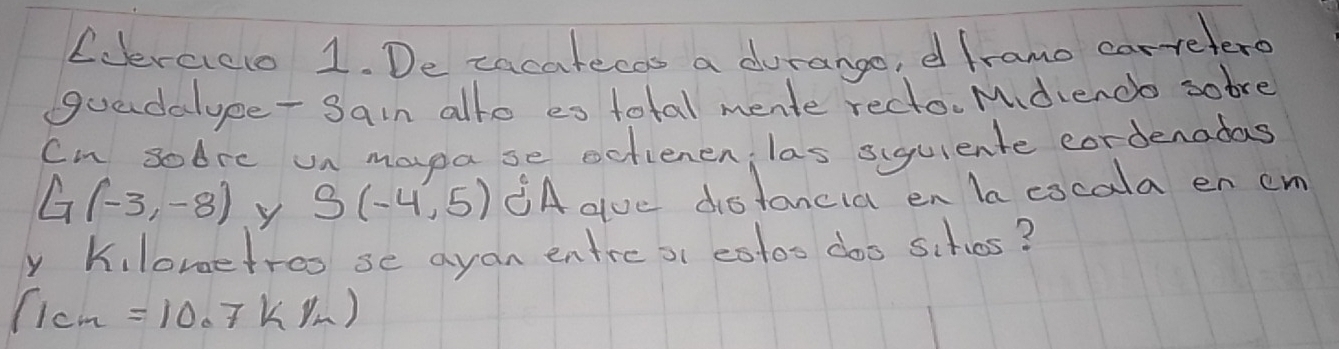 Ejercicio 1. De zacatecas a durango, el tramo carretero
guadalupe - Sain alto es total mente recto. Midiendo sobre
Cm sobre un mapa se octienen, las siguiente cordenadas
G(-3,-8) y S(-4,5) ¿A que distancia en la escala en cm
y Kilometros se ayan entre si estos dos sitios?
(1cm = 10.7 K/m)